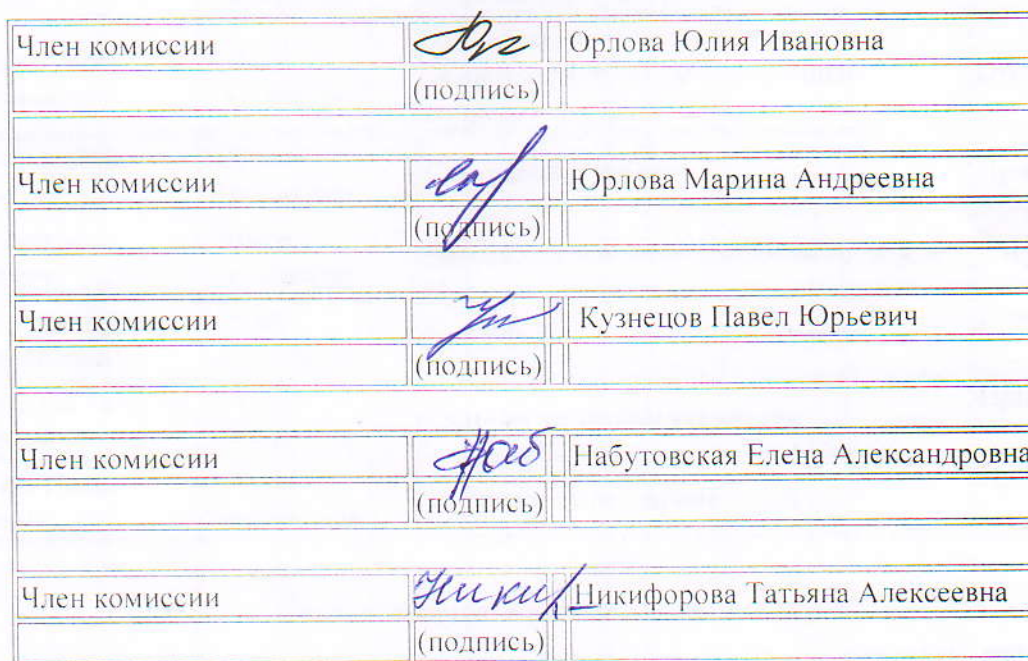 Член комиссии Орлова Юлия Ивановна
(подпись)
Член комиссии Юрлова Марина Андреевна
(подпись)
Член комиссии Кузнецов Павел Юрьевич
(подпись)
Член комиссии Наб Набутовская Елена Александровна
(подпись)
Член комиссии Ники Никифорова Татьяна Алексеевна
(подпись)